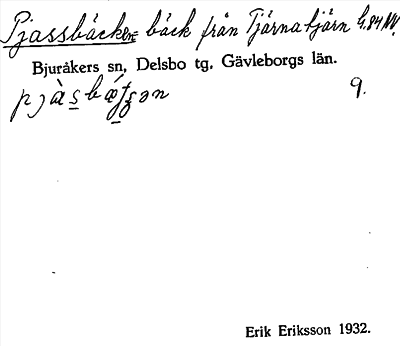 Pjassbäcken bäck från Tjärnatjärn G.84NV.
Bjuråkers sn, Delsbo tg, Gävleborgs län.
9.
Erik Eriksson 1932.